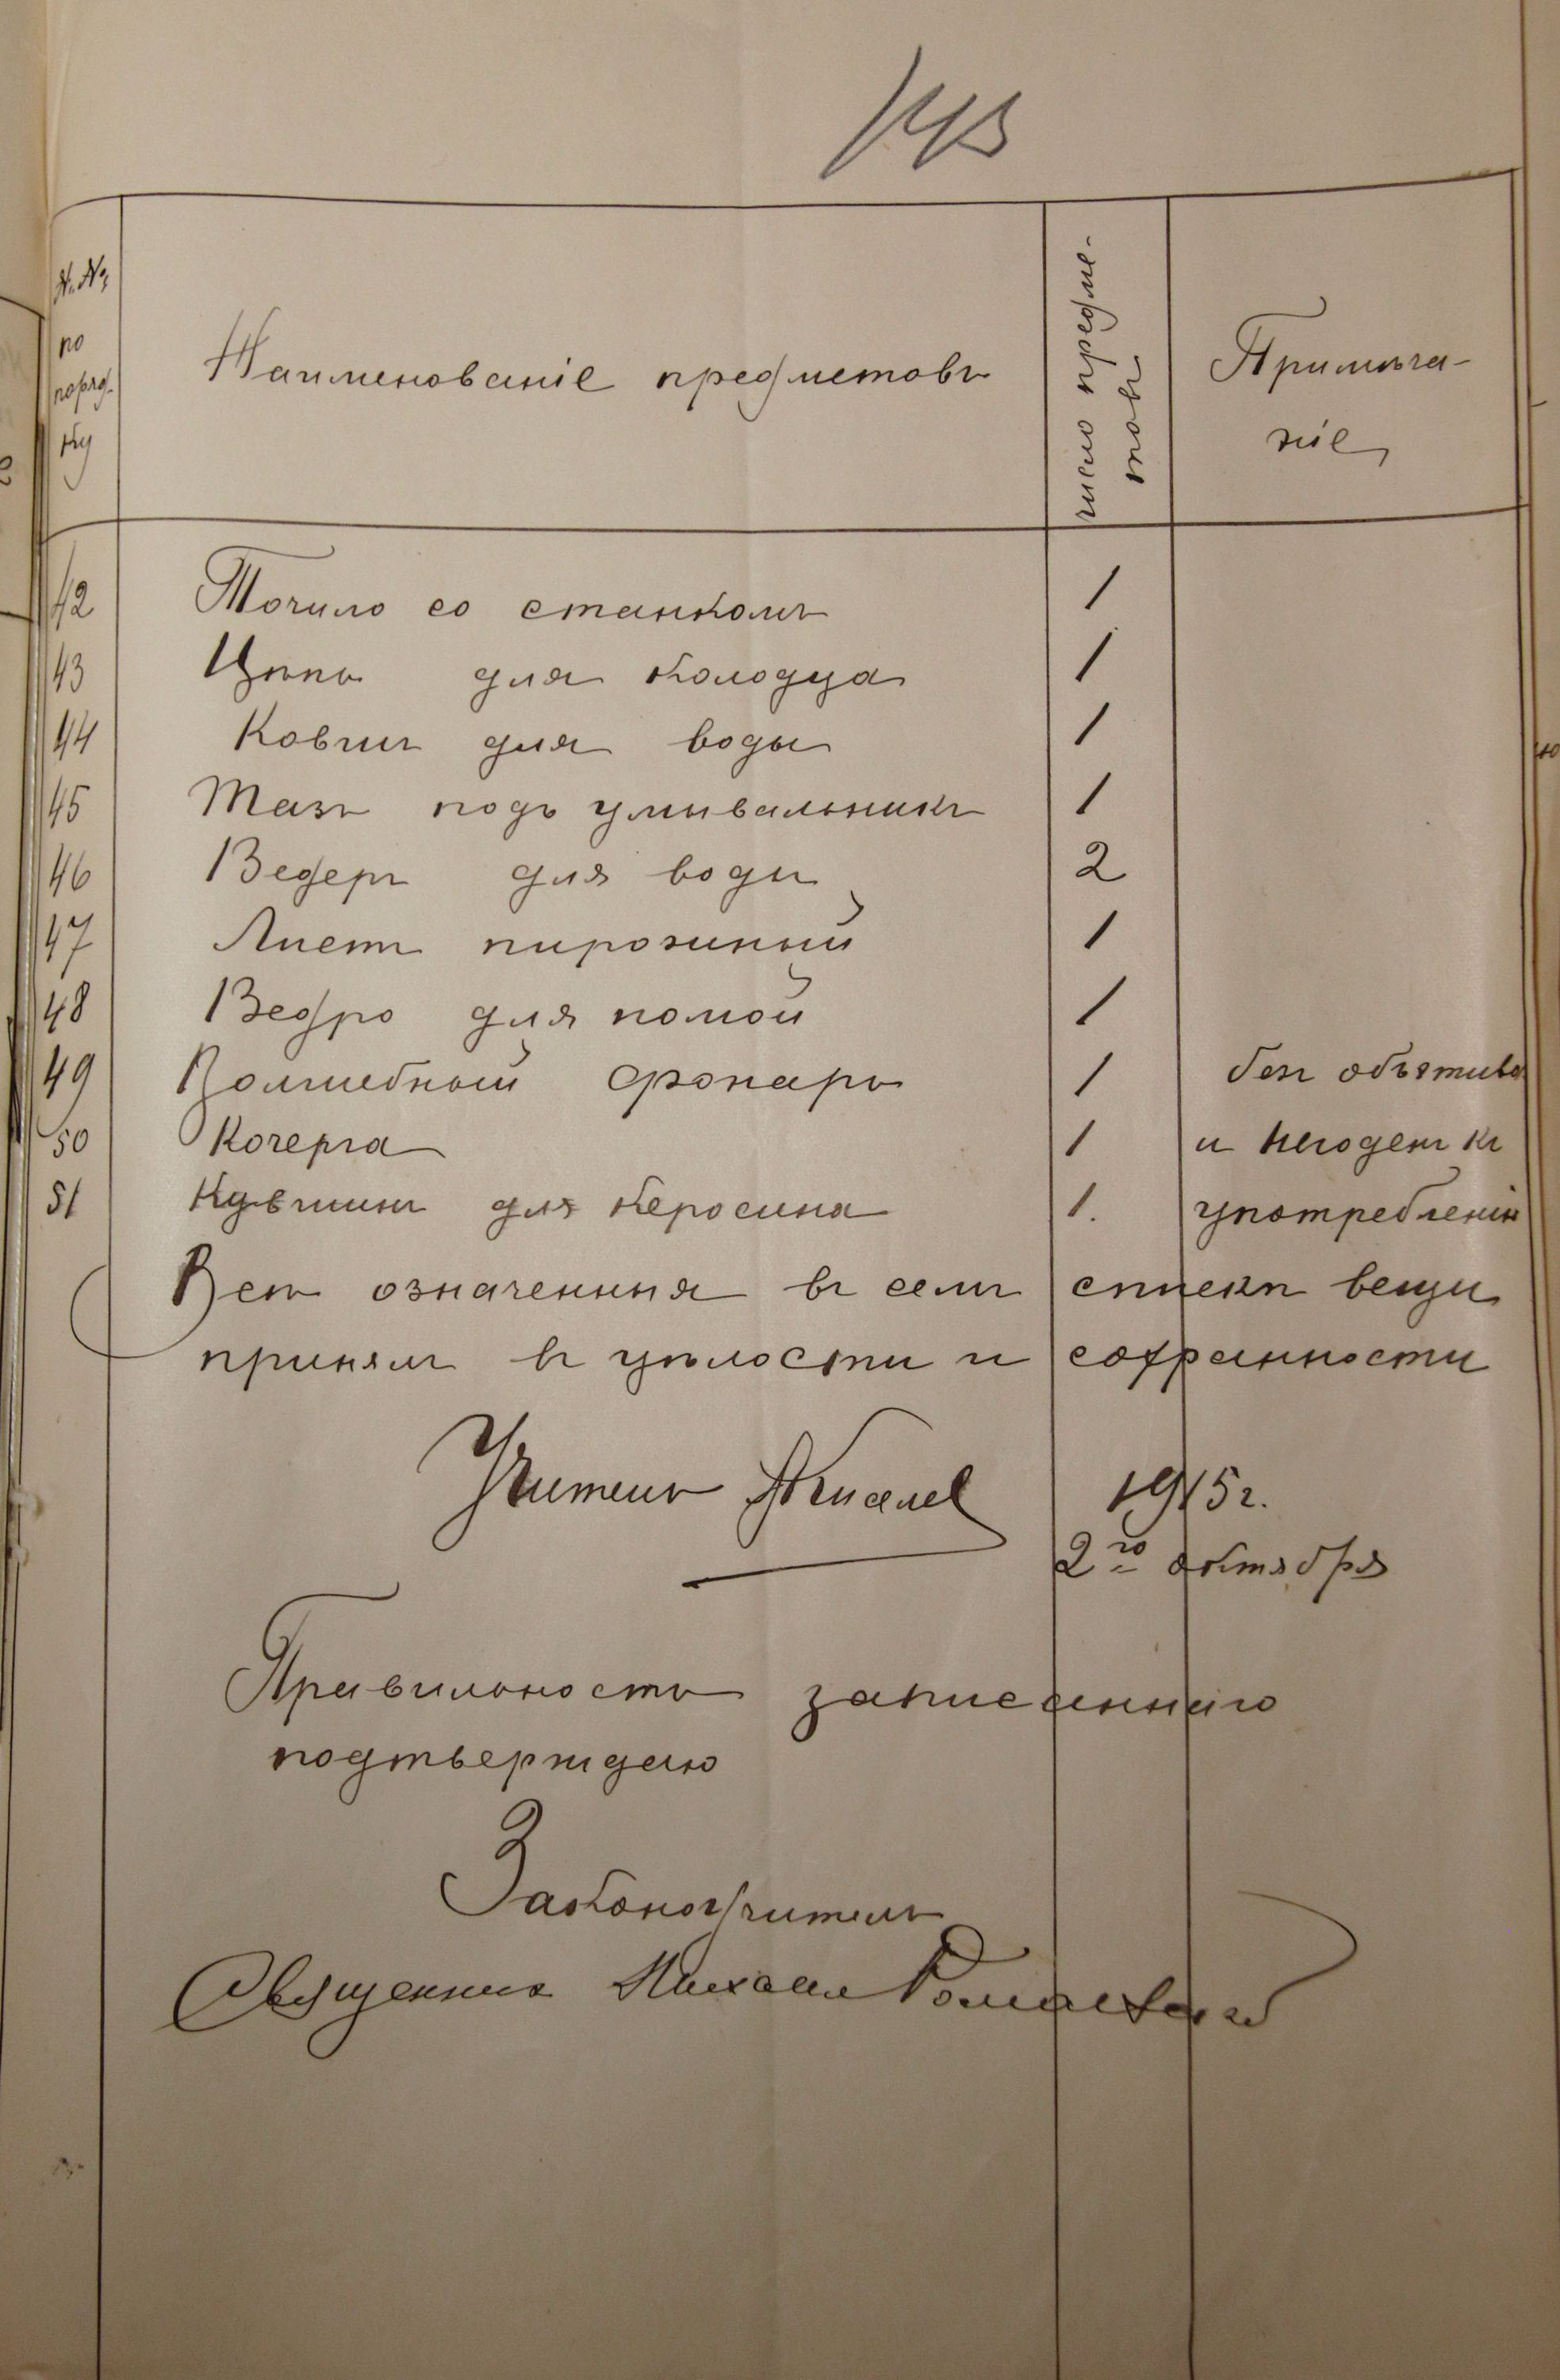 143
№№ по поряд-ку
Наименованіе предметовъ
число предме-товъ
Примѣча-ніе
42 Точило со станкомъ 1
43 Цѣпь для колодца 1
44 Ковшъ для воды 1
45 Тазъ подъ умывальникъ 1
46 Ведеръ для воды 2
47 Листъ пирожный 1
48 Ведро для помой 1
49 Волшебный фонарь 1 безъ объятива
50 Кочерга 1 и негоденъ къ
51 Кувшинъ для керосина 1. употребленію
Всѣ означенныя въ семъ спискѣ вещи
принялъ въ цѣлости и сохранности
Учитель Киселев 1915 г.
2го октября
Правильность записаннаго
подтверждаю
Законоучитель
Священникъ Михаилъ